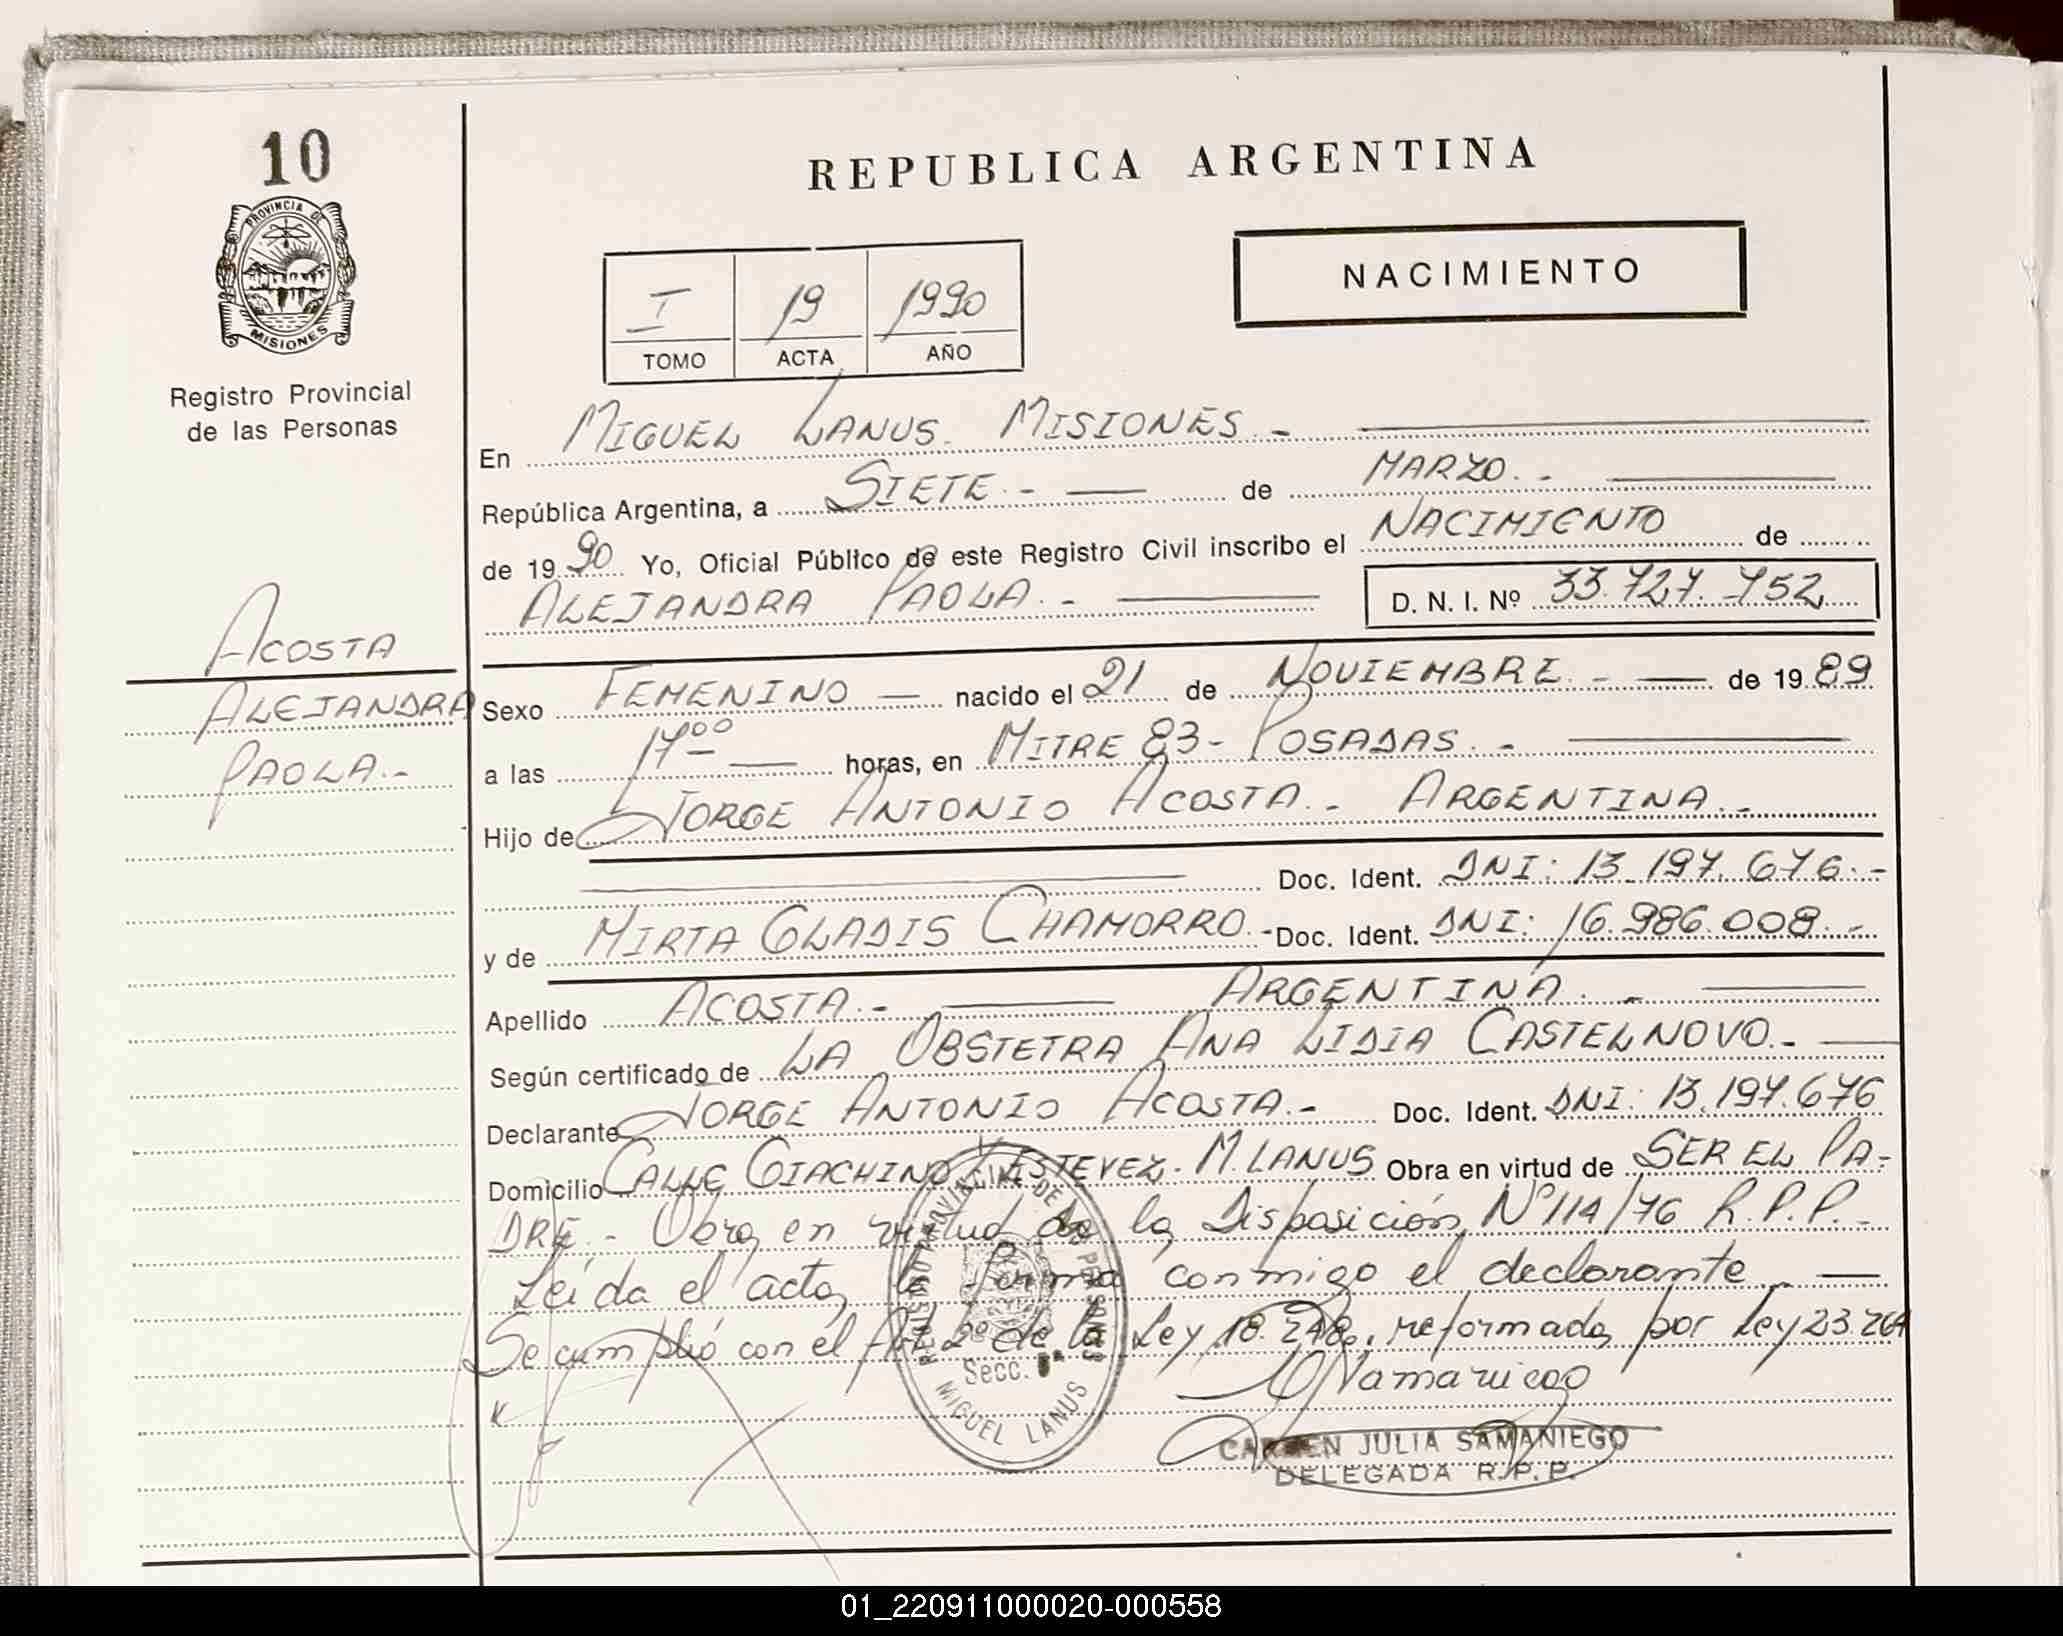 10
PROVINCIA DE
MISIONES
Registro Provincial
de las Personas
ACOSTA
ALEJANDRA
PAOLA.-
REPUBLICA ARGENTINA
NACIMIENTO
I 19 1990
TOMO ACTA AÑO
En MIGUEL LANUS. MISIONES.-
República Argentina, a SIETE.- de MARZO.-
de 1990 Yo, Oficial Público de este Registro Civil inscribo el NACIMIENTO de
ALEJANDRA PAOLA.- D. N. I. Nº 33.727.752
Sexo FEMENINO nacido el 21 de NOVIEMBRE.- de 1989
a las 17⁰⁰ horas, en MITRE 83- POSADAS.-
Hijo de JORGE ANTONIO ACOSTA.- ARGENTINA.-
Doc. Ident. DNI: 13.197.676.-
y de MIRTA GLADIS CHAMORRO.- Doc. Ident. DNI: 16.986.008.-
Apellido ACOSTA.- ARGENTINA.-
Según certificado de LA OBSTETRA ANA LIDIA CASTELNOVO.-
Declarante JORGE ANTONIO ACOSTA.- Doc. Ident. DNI: 13.197.676
Domicilio CALLE GIACHINO Y ESTEVEZ. M. LANUS Obra en virtud de SER EL PA-
DRE.- Obra en virtud de la Disposición Nº 114/76 R.P.P.-
Leída el acta, la firma conmigo el declarante
Se cumplió con el Art. 2º de la Ley 18.248, reformada por Ley 23.264
REGISTRO PROVINCIAL DE LAS PERSONAS
Secc. 5ª
MIGUEL LANUS
CARMEN JULIA SAMANIEGO
DELEGADA R.P.P.
01_220911000020-000558